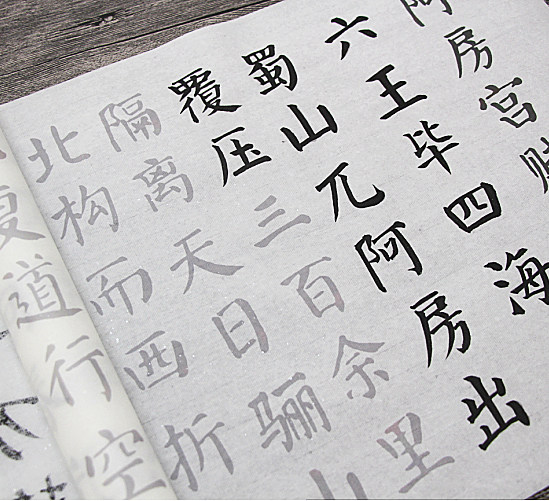 阿房宫赋
六王毕四海
蜀山兀阿房出
覆压三百余里
隔离天日骊山
北构而西折
复道行空